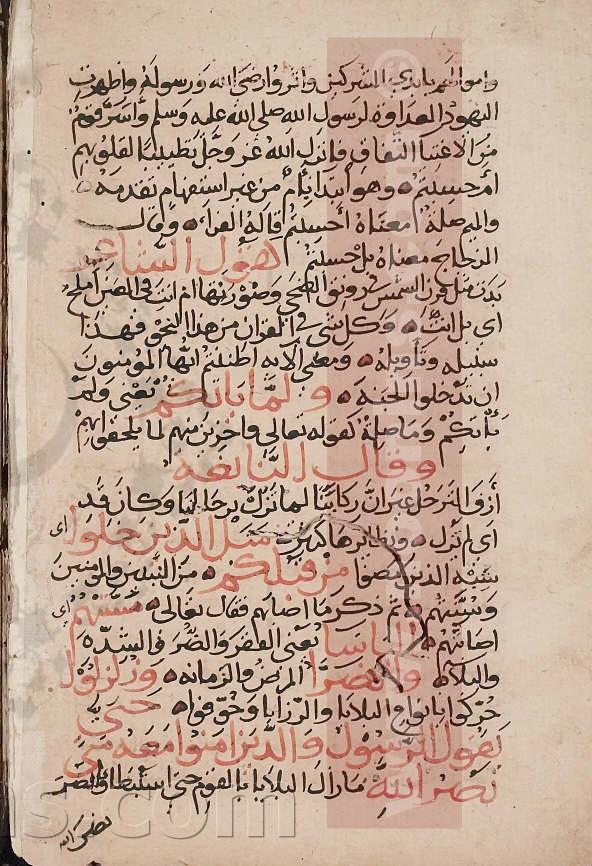 واموالهم بايدي المشركين واثروا رضى الله ورسوله واظهرت
اليهود العداوة لرسول الله صلى الله عليه وسلم واسر قوم
من الاغنيا النفاق فانزل الله عز وجل تطييبا لقلوبهم
ام حسبتم وهو ابتدا بام من غير استفهام تقدمه
والميم صلة معناه احسبتم قاله الفراء وقال
الزجاج معناه بل حسبتم كقول الشاعر
بدت مثل قرن الشمس في رونق الضحى وصورتها ام انت في العين املح
اي بل انت وكل شي في القران من هذا النحو فهذا
سبيله وتاويله ومعنى الاية اظننتم ايها المؤمنون
ان تدخلوا الجنة ولما ياتكم يعني ولم
ياتكم وما صلة كقوله تعالى واخرين منهم لما يلحقوا بهم
وقال النابغة
ازف الترحل غير ان ركابنا لما تزل برحالنا وكان قد
اي لم تزل ونظايرها كثير مثل الذين خلوا اي
شبه الذين مضوا من قبلكم من النبيين والمومنين
وسنتهم ثم ذكر ما اصابهم فقال تعالى مستهم اي
اصابتهم الباسا يعني الفقر والضر والشدة
والبلا والضرا المرض والزمانة وزلزلوا
حركوا بانواع البلايا والرزايا وخوفوا حتى
يقول الرسول والذين امنوا معه متى
نصر الله مازال البلايا بالقوم حتى استبطاوا النصر